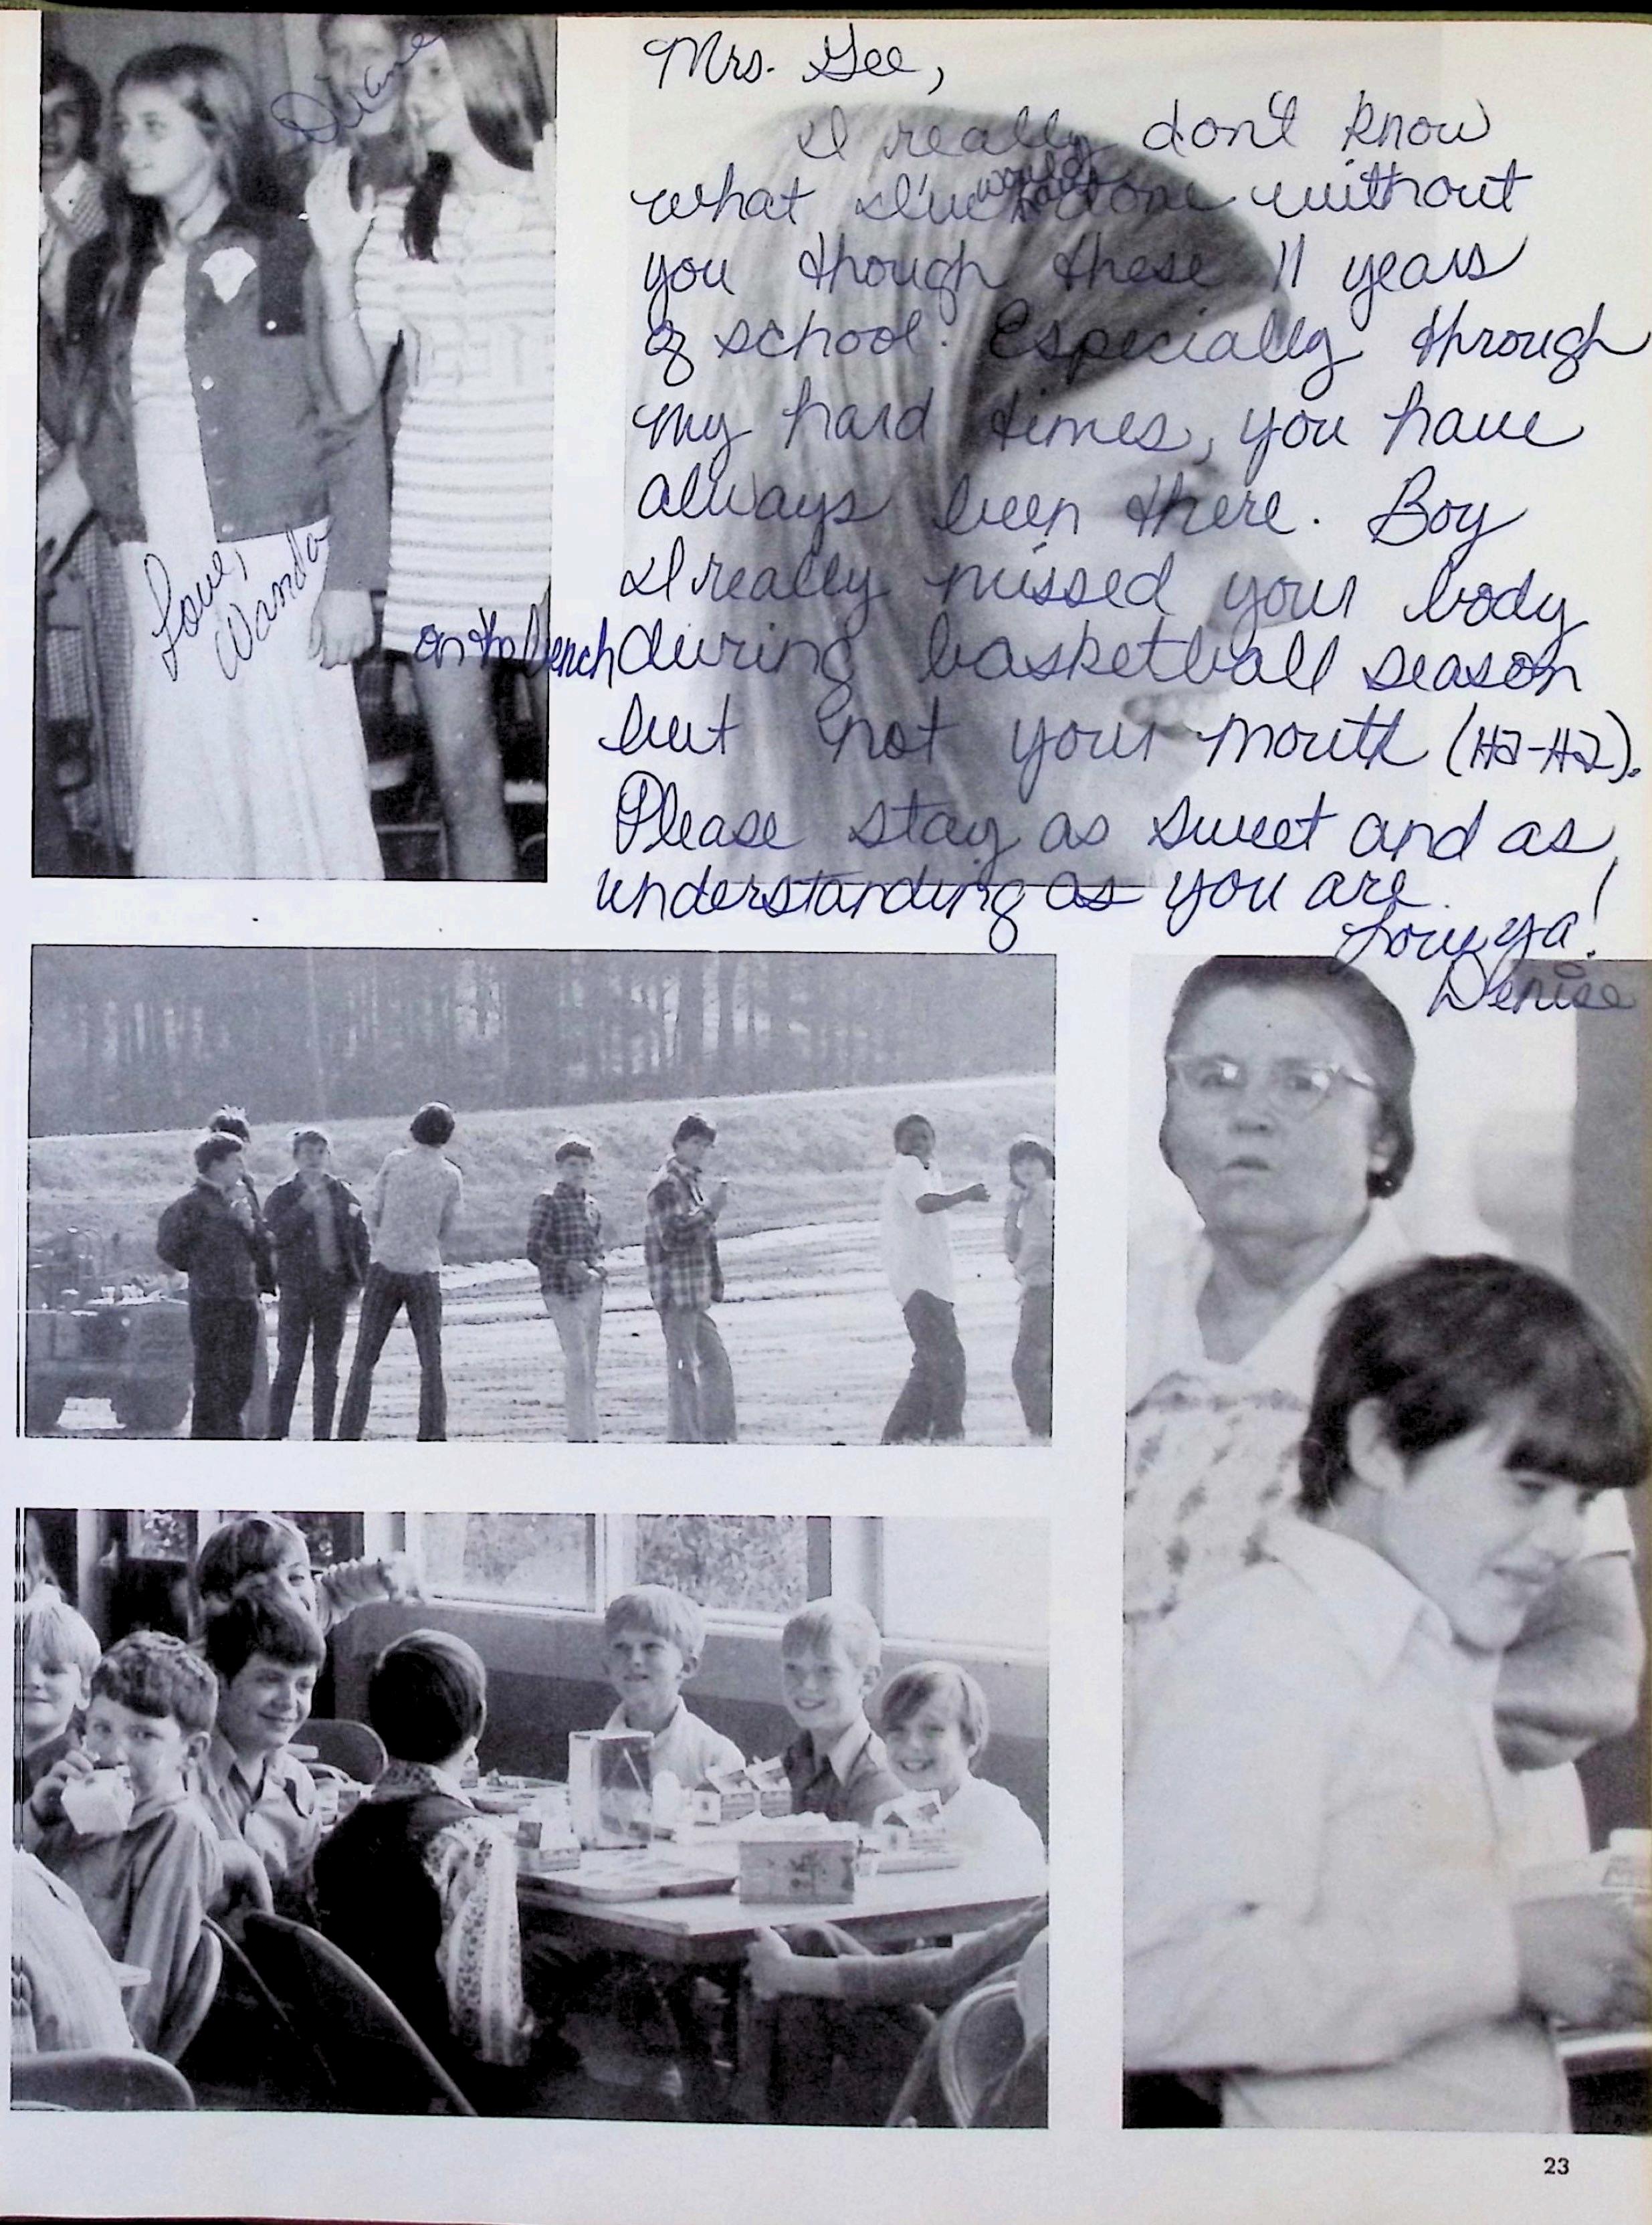 Diane
Love,
Wanda
Mrs. Gee,
I really don't know
what I've would have done without
you though these 11 years
of school. Especially through
my hard times, you have
always been there. Boy
I really missed your body
on the bench during basketball season
but not your mouth (Ha-Ha).
Please stay as sweet and as
understanding as you are.
Love ya!
Denise
23